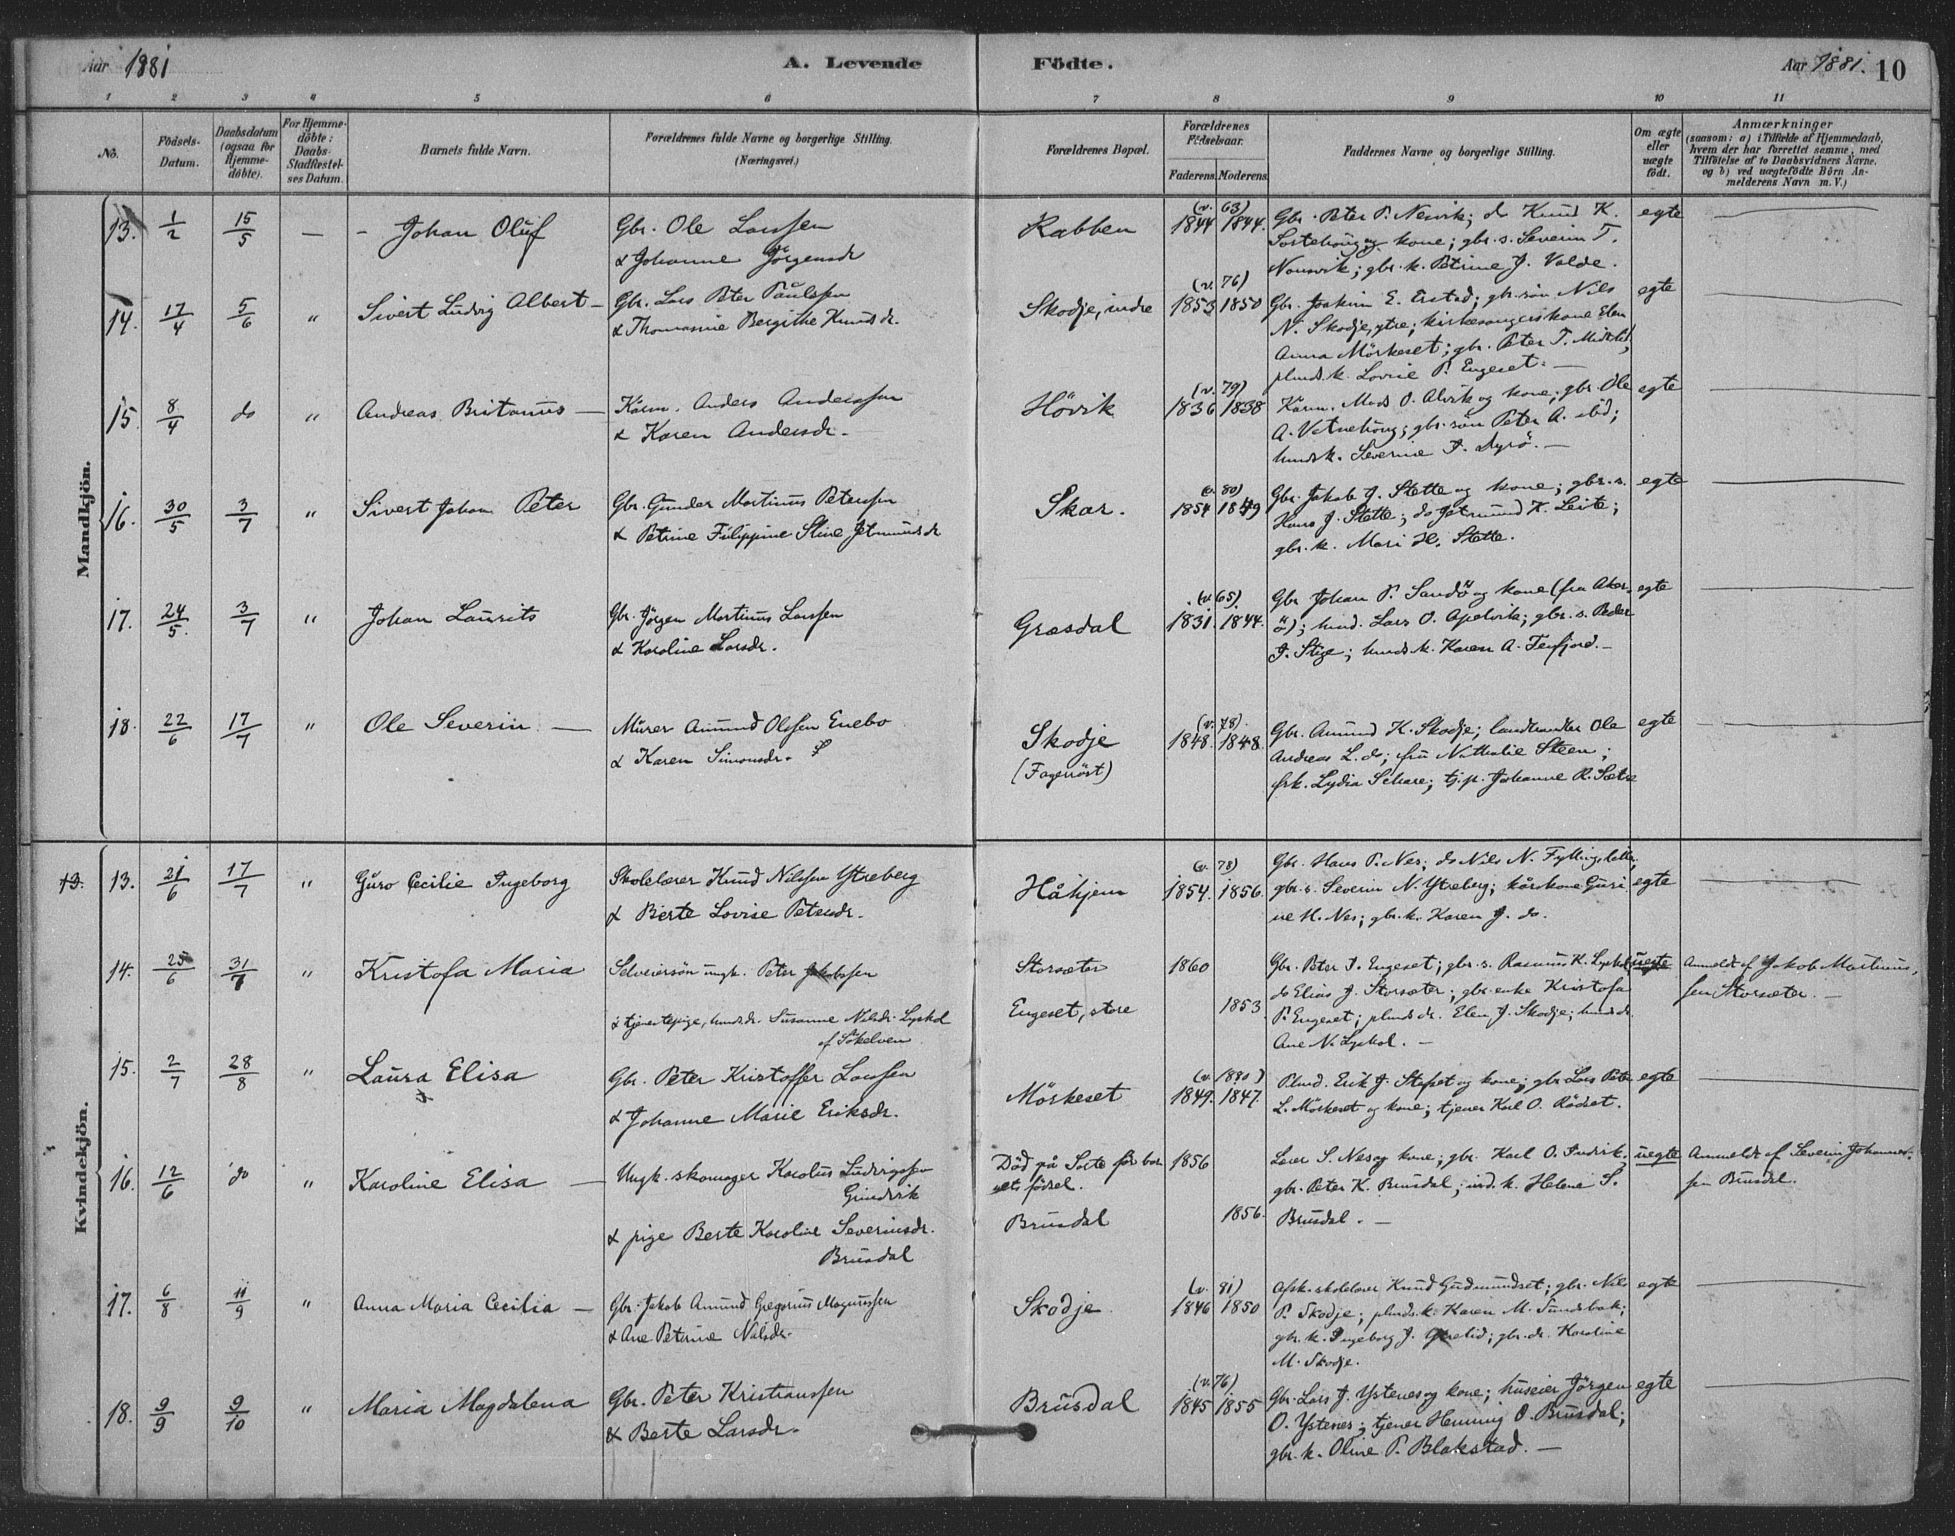 Aar 1881
A. Levende
Födte.
Aar 1881.
10
1 2 3 4 5 6 7 8 9 10 11
No.
Födsels-
Datum.
Daabsdatum
(ogsaa for
Hjemme-
döbte).
For Hjemme-
döbte:
Daabs-
Stadfæstel-
ses Datum.
Barnets fulde Navn.
Forældrenes fulde Navne og borgerlige Stilling.
(Næringsvei.)
Forældrenes Bopæl.
Forældrenes
Födselsaar.
Faderens. Moderens.
Faddernes Navne og borgerlige Stilling.
Om ægte
eller
uægte
födt.
Anmærkninger
(saasom: a) i Tilfælde af Hjemmedaab,
hvem der har forrettet samme, med
Tilföielse af to Daabsvidners Navne,
og b) ved uægtefödte Börn An-
melderens Navn m. V.)
Mandkjön.
13. 1/2 15/5 — Johan Oluf
Gbr. Ole Larssen
& Johanne Jörgensdr
Rabben
(v. 63)
1844 1844.
Gbr. Peter P. Nesvik; do Knud K.
kone; gbr. s. Severin T.
gbr. k. Petrine J. Valde.
egte
14. 17/4 5/6 " Sivert Ludvig Albert —
Gbr. Lars Peter Paulssen
& Thomasine Bergithe Knudsdr.
Skodje, indre
(v. 76)
1853 1850
Gbr. Joakim E. Erstad; gbr. sön Nils
N. Skodje, ytre; kirkesangerskone Elen
Anna Mörkeset; gbr. Peter T. Midtlid,
plmds. k. Lovise P. Engeset. —
egte
15. 8/4 do " Andreas Britanus —
Kårm. Anders Anderssen
& Karen Andersdr.
Hövik
(v. 79)
1836 1838
Kårm. Mads O. Alvik og kone; gbr. Ole
A. gbr. sön Peter A. ibid;
husmdsk. Severine J. Dyrö. —
egte
16. 30/5 3/7 " Sivert Johan Peter
Gbr. Gunder Martinus Peterssen
& Petrine Filippine Stine Jetmundsdr
Skar.
(v. 80)
1854 1849
Gbr. Jakob J. Stette og kone; gbr. s.
Hans J. Stette; do Jetmund K. Leite;
gbr. k. Mari H. Stette.
egte
17. 24/5. 3/7 " Johan Laurits
Gbr. Jörgen Martinus Larssen
& Karoline Larsdr.
Græsdal
(v. 65)
1831. 1844.
Gbr Johan P. Sandö og kone (fra Aker-
ö); husmd. Lars O. Apelvik; gbr. s. Peder
J. Stige; husmds. k. Karen A. Tenfjord. —
egte
18. 22/6 17/7 " Ole Severin —
Murer Amund Olssen Enebo
& Karen Simonsdr.
Skodje
(Fagerröst)
(v. 78)
1848. 1848.
Gbr. Amund K. Skodje; landhandler Ole
Andreas L. do; fru Nathalie Steen;
frk. Lydia Schare; tj. p. Johanne R. Sætre
egte
Kvindekjön.
13. 13. 21/6 17/7 " Guro Cecilie Ingeborg
Skolelærer Knud Nilssen Ytreberg
& Berte Lovise Petersdr.
Håhjem
(v. 78)
1854. 1856.
Gbr. Hans P. Nes; do Nils N. Fyllingslatten,
gbr. s. Severin N. Ytreberg; kårskone Guri
ne H. Nes; gbr. k. Karen J. do.
egte
14. 25/6 31/7 " Kristofa Maria
Selveiersön ungk. Peter Jakobssen
& tjenestepige, husmds. dr. Susanne Nilsdr. Lyshol
af Sökelven
Storsæter
Engeset, store
1860
1853
Gbr. Peter P. Engeset; gbr. s. Rasmus K. Lyshol,
do Elias J. Storsæter; gbr. enke Kristofa
P. Engeset; plmds. dr. Elen J. Skodje; husmds. dr.
Ane N. Lyshol. —
uegte
Anmeldt af Jakob Martinus-
sen Storsæter. —
15. 2/7 28/8 " Laura Elisa
Gbr. Peter Kristoffer Larssen
& Johanne Marie Eriksdr.
Mörkeset
(v. 1880)
1849. 1847.
Plmd. Erik J. Stafset og kone; gbr Lars Peter
L. Mörkeset og kone; tjener Karl O. Rödset.
egte
16. 12/6 do " Karoline Elisa —
Ungk. skomager Karolus Ludvigssen
Grindvik
& pige Berte Karoline Severinsdr.
Brusdal
Död på Sorte för bar-
nets födsel.
Brusdal
1856
1856.
Lærer S. Nes og kone; gbr. Karl O.
gbr. Peter K. Brusdal; k. Helene S.
Brusdal. —
uegte
Anmeldt af Severin Johannes-
sen Brusdal.
17. 6/8 11/9 " Anna Maria Cecilia —
Gbr. Jakob Amund Gregorius Magnussen
& Ane Petrine Nilsdr.
Skodje
(v. 81)
1846 1850
Afsk. skolelærer Knud Gudmundset; gbr. Nils
P. Skodje; plmds. k. Karen M. Sundsbak;
gbr. k. Ingeborg J. gbr. dr. Karoline
M. Skodje.
egte
18. 9/9 9/10 " Maria Magdalena
Gbr. Peter Kristianssen
& Berte Larsdr.
Brusdal
(v. 76)
1845 1855
Gbr. Lars J. Ystenes og kone; huseier Jörgen
O. Ystenes; tjener Henning O. Brusdal;
gbr. k. Oline P. Blakstad. —
egte